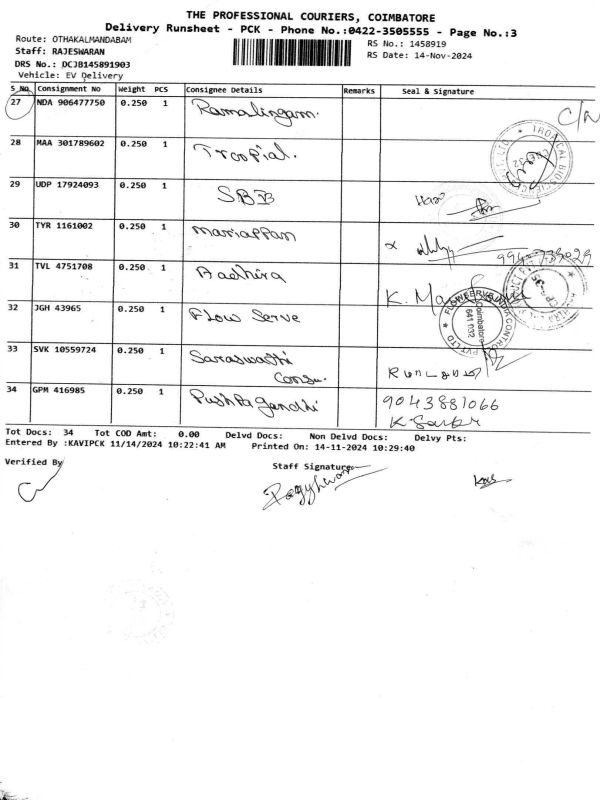 THE PROFESSIONAL COURIERS, COIMBATORE
Delivery Runsheet - PCK - Phone No.:0422-3505555 - Page No.:3
Route: OTHAKALMANDABAM
RS No.: 1458919
Staff: RAJESWARAN
RS Date: 14-Nov-2024
DRS No.: DCJB145891903
Vehicle: EV Delivery
S No Consignment No Weight PCS Consignee Details Remarks Seal & Signature
27 NDA 906477750 0.250 1 Ramalingam.
28 MAA 301789602 0.250 1 Troopial.
29 UDP 17924093 0.250 1 SBB
30 TYR 1161002 0.250 1 Mariappan
31 TVL 4751708 0.250 1 Aadhira
32 JGH 43965 0.250 1 Flow Serve
33 SVK 10559724 0.250 1 Saraswathi
Consu.
34 GPM 416985 0.250 1 Pushpa Gandhi 9043881066
Tot Docs: 34 Tot COD Amt: 0.00 Delvd Docs: Non Delvd Docs: Delvy Pts:
Entered By :KAVIPCK 11/14/2024 10:22:41 AM Printed On: 14-11-2024 10:29:40
Verified By
Staff Signature